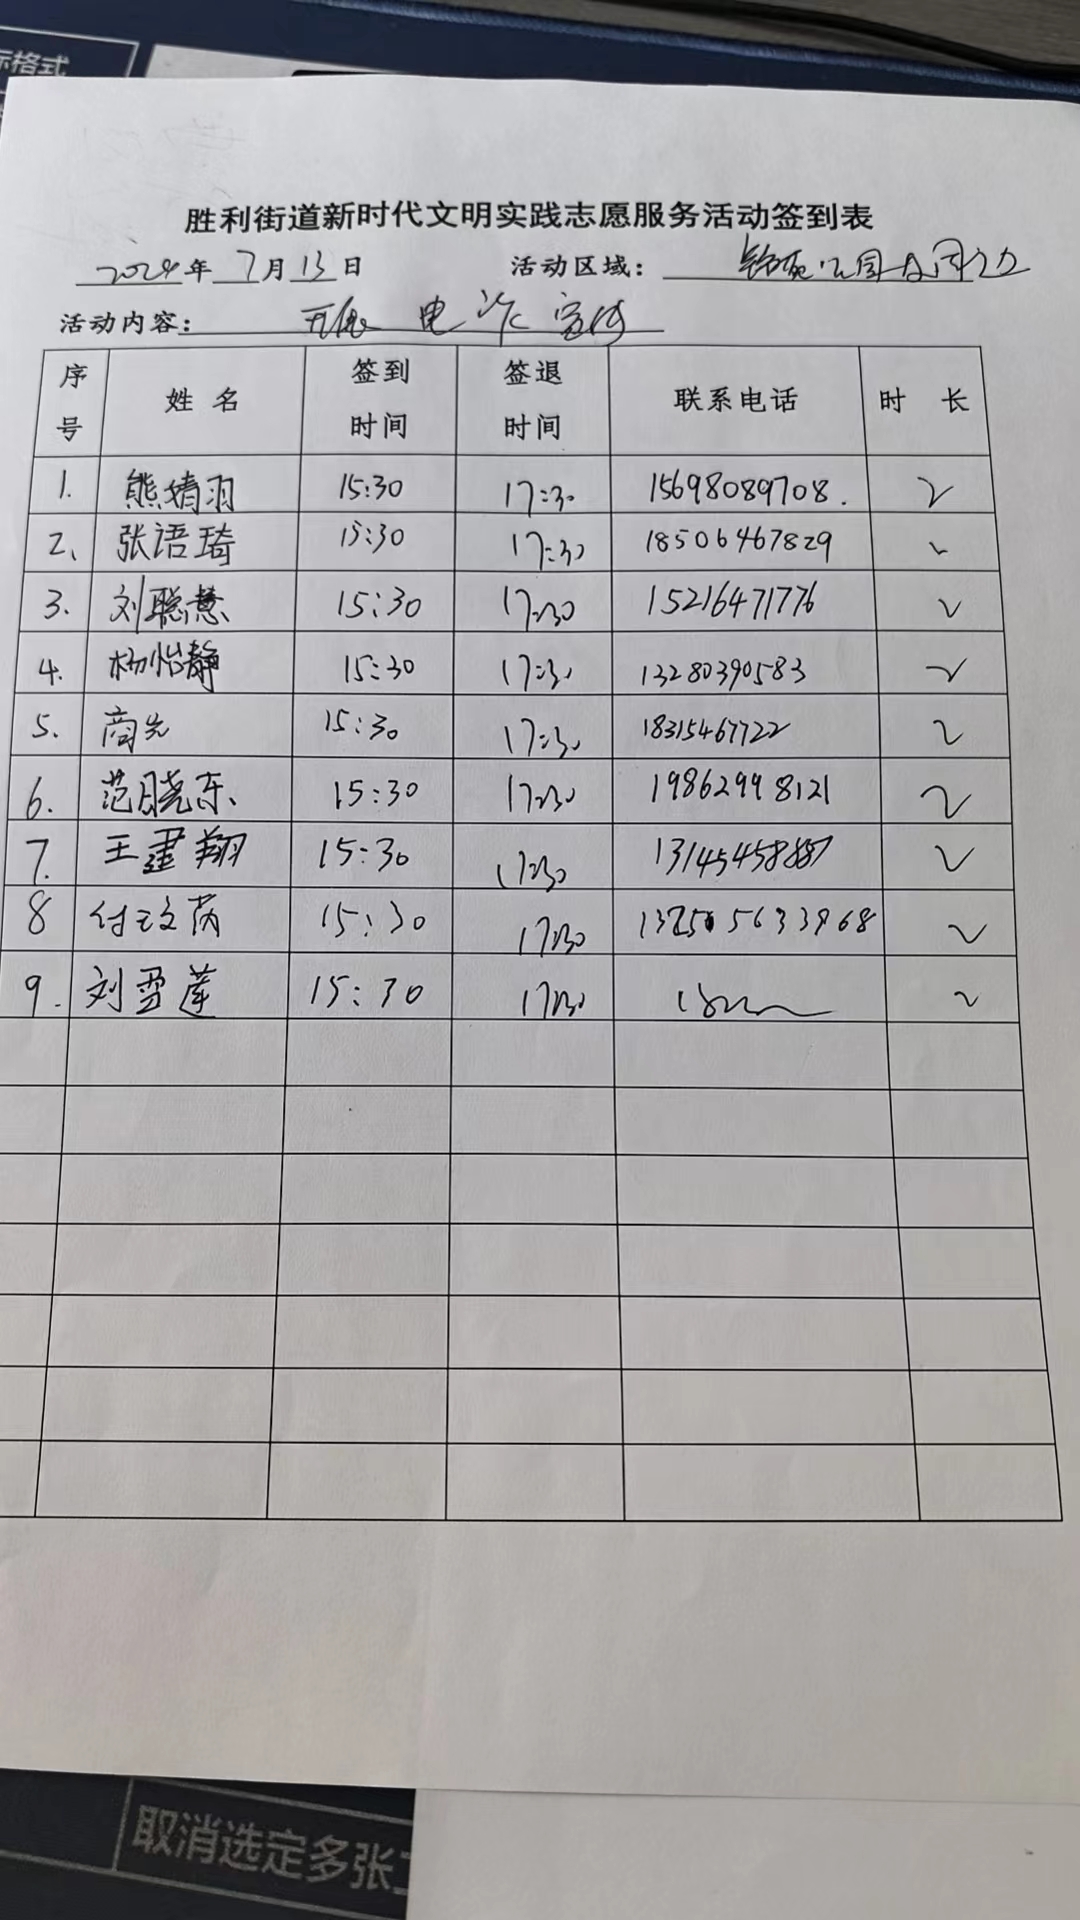 示格式
胜利街道新时代文明实践志愿服务活动签到表
2024年 7月 13日 活动区域: 公园
活动内容: 电 宣传
序号 姓名 签到时间 签退时间 联系电话 时长
1. 熊婧羽 15:30 17:30 15698089708. 2
2、 张语琦 15:30 17:30 18506467829 2
3. 刘聪慧 15:30 17:30 15216471776 2
4. 杨怡静 15:30 17:30 13280390583 2
5. 商允 15:30 17:30 18315467722 2
6. 范晓东 15:30 17:30 19862998121 2
7. 王建翔 15:30 17:30 2
8 付玟芮 15:30 17:30 2
9. 刘雪莲 15:30 17:30 2
取消选定多张